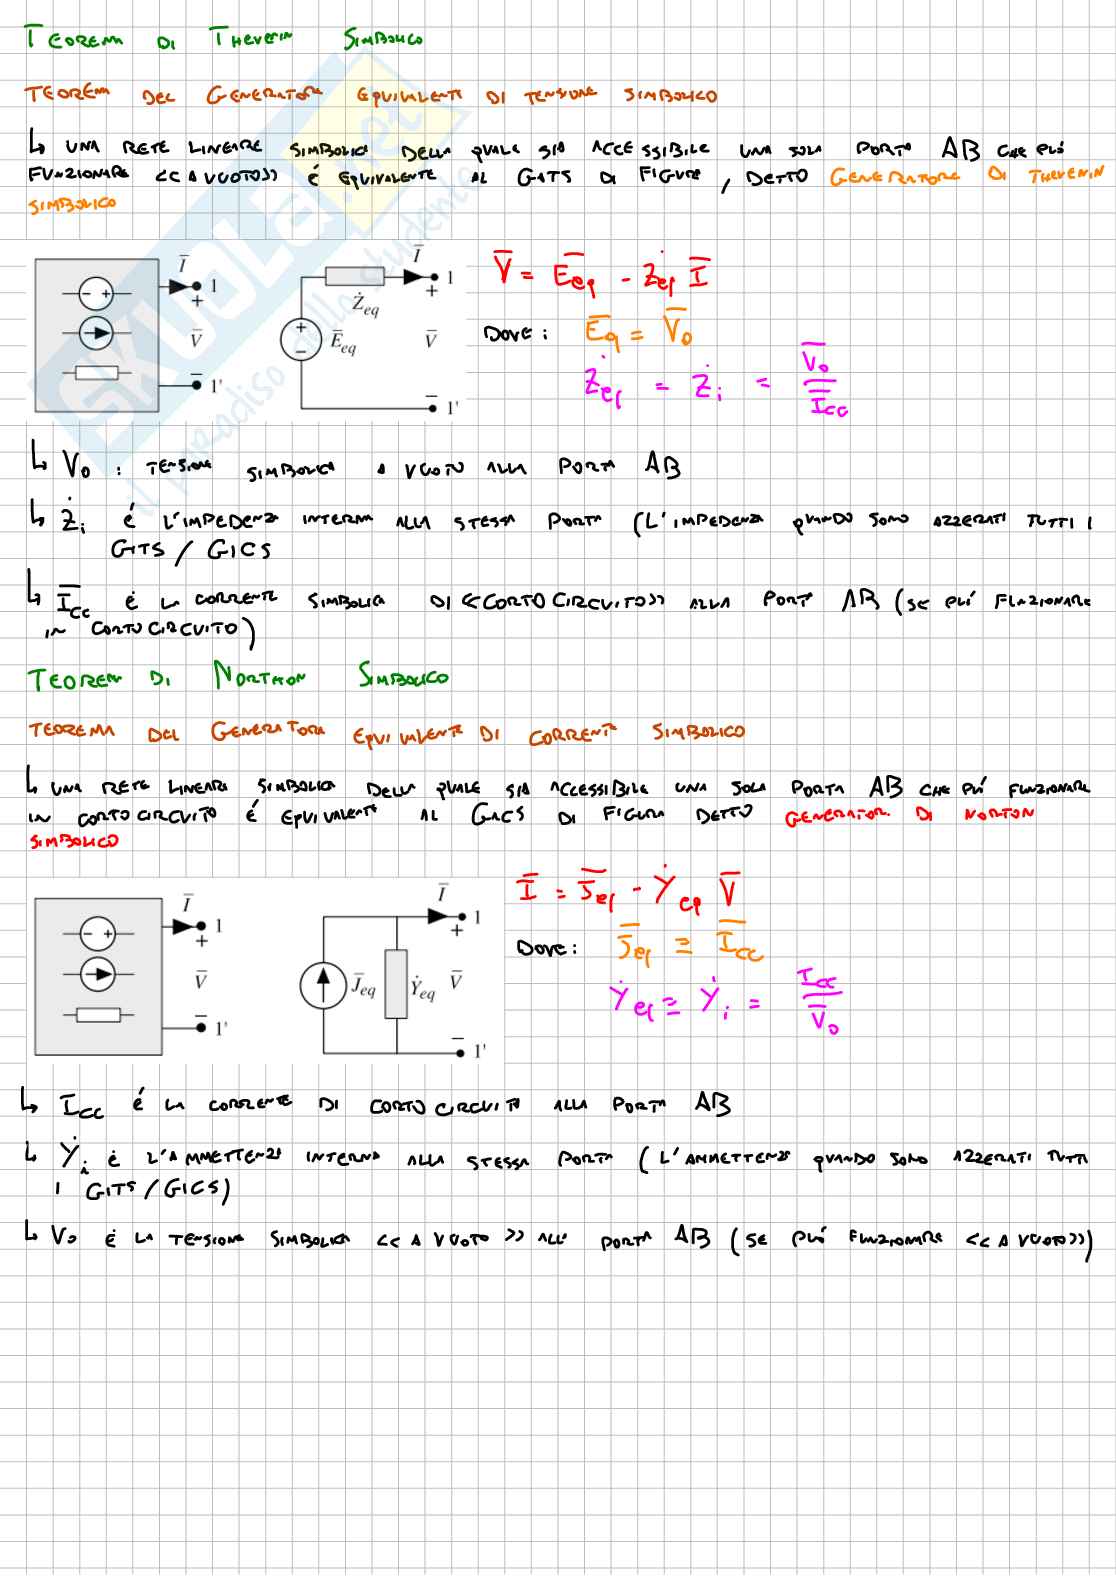 TEOREMA DI THEVENIN SIMBOLICO
TEOREMA DEL GENERATORE EQUIVALENTE DI TENSIONE SIMBOLICO
↳ UNA RETE LINEARE SIMBOLICA DELLA QUALE SIA ACCESSIBILE UNA SOLA PORTA AB CHE PUÓ
FUNZIONARE <<A VUOTO>> É EQUIVALENTE AL GATS DI FIGURA, DETTO GENERATORE DI THEVENIN
SIMBOLICO
I̅ 1 + V̅ − 1'
I̅ 1 + Żeq E̅eq V̅ − 1'
V̅ = E̅eq - Żeq I̅
DOVE: E̅q = V̅0
Żeq = Żi = V̅0 / I̅cc
↳ V0 : TENSIONE SIMBOLICA A VUOTO ALLA PORTA AB
↳ Żi É L'IMPEDENZA INTERNA ALLA STESSA PORTA (L'IMPEDENZA QUANDO SONO AZZERATI TUTTI I
GITS / GICS
↳ I̅cc É LA CORRENTE SIMBOLICA DI <<CORTO CIRCUITO>> ALLA PORTA AB (SE PUÓ FUNZIONARE
IN CORTO CIRCUITO)
TEOREMA DI NORTHON SIMBOLICO
TEOREMA DEL GENERATORE EQUIVALENTE DI CORRENTE SIMBOLICO
↳ UNA RETE LINEARE SIMBOLICA DELLA QUALE SIA ACCESSIBILE UNA SOLA PORTA AB CHE PUÓ FUNZIONARE
IN CORTO CIRCUITO É EQUIVALENTE AL GACS DI FIGURA DETTO GENERATORE DI NORTON
SIMBOLICO
I̅ 1 + V̅ − 1'
I̅ 1 + J̅eq Ẏeq V̅ − 1'
I̅ = J̅eq - Ẏeq V̅
DOVE: J̅eq ≅ I̅cc
Ẏeq ≅ Ẏi = Icc / V̅0
↳ Icc É LA CORRENTE DI CORTO CIRCUITO ALLA PORTA AB
↳ Ẏi É L'AMMETTENZA INTERNA ALLA STESSA PORTA (L'AMMETTENZA QUANDO SONO AZZERATI TUTTI
I GITS / GICS)
↳ V0 É LA TENSIONE SIMBOLICA <<A VUOTO>> ALLA PORTA AB (SE PUÓ FUNZIONARE <<A VUOTO>>)
SKUOLA.net
il paradiso dello studente